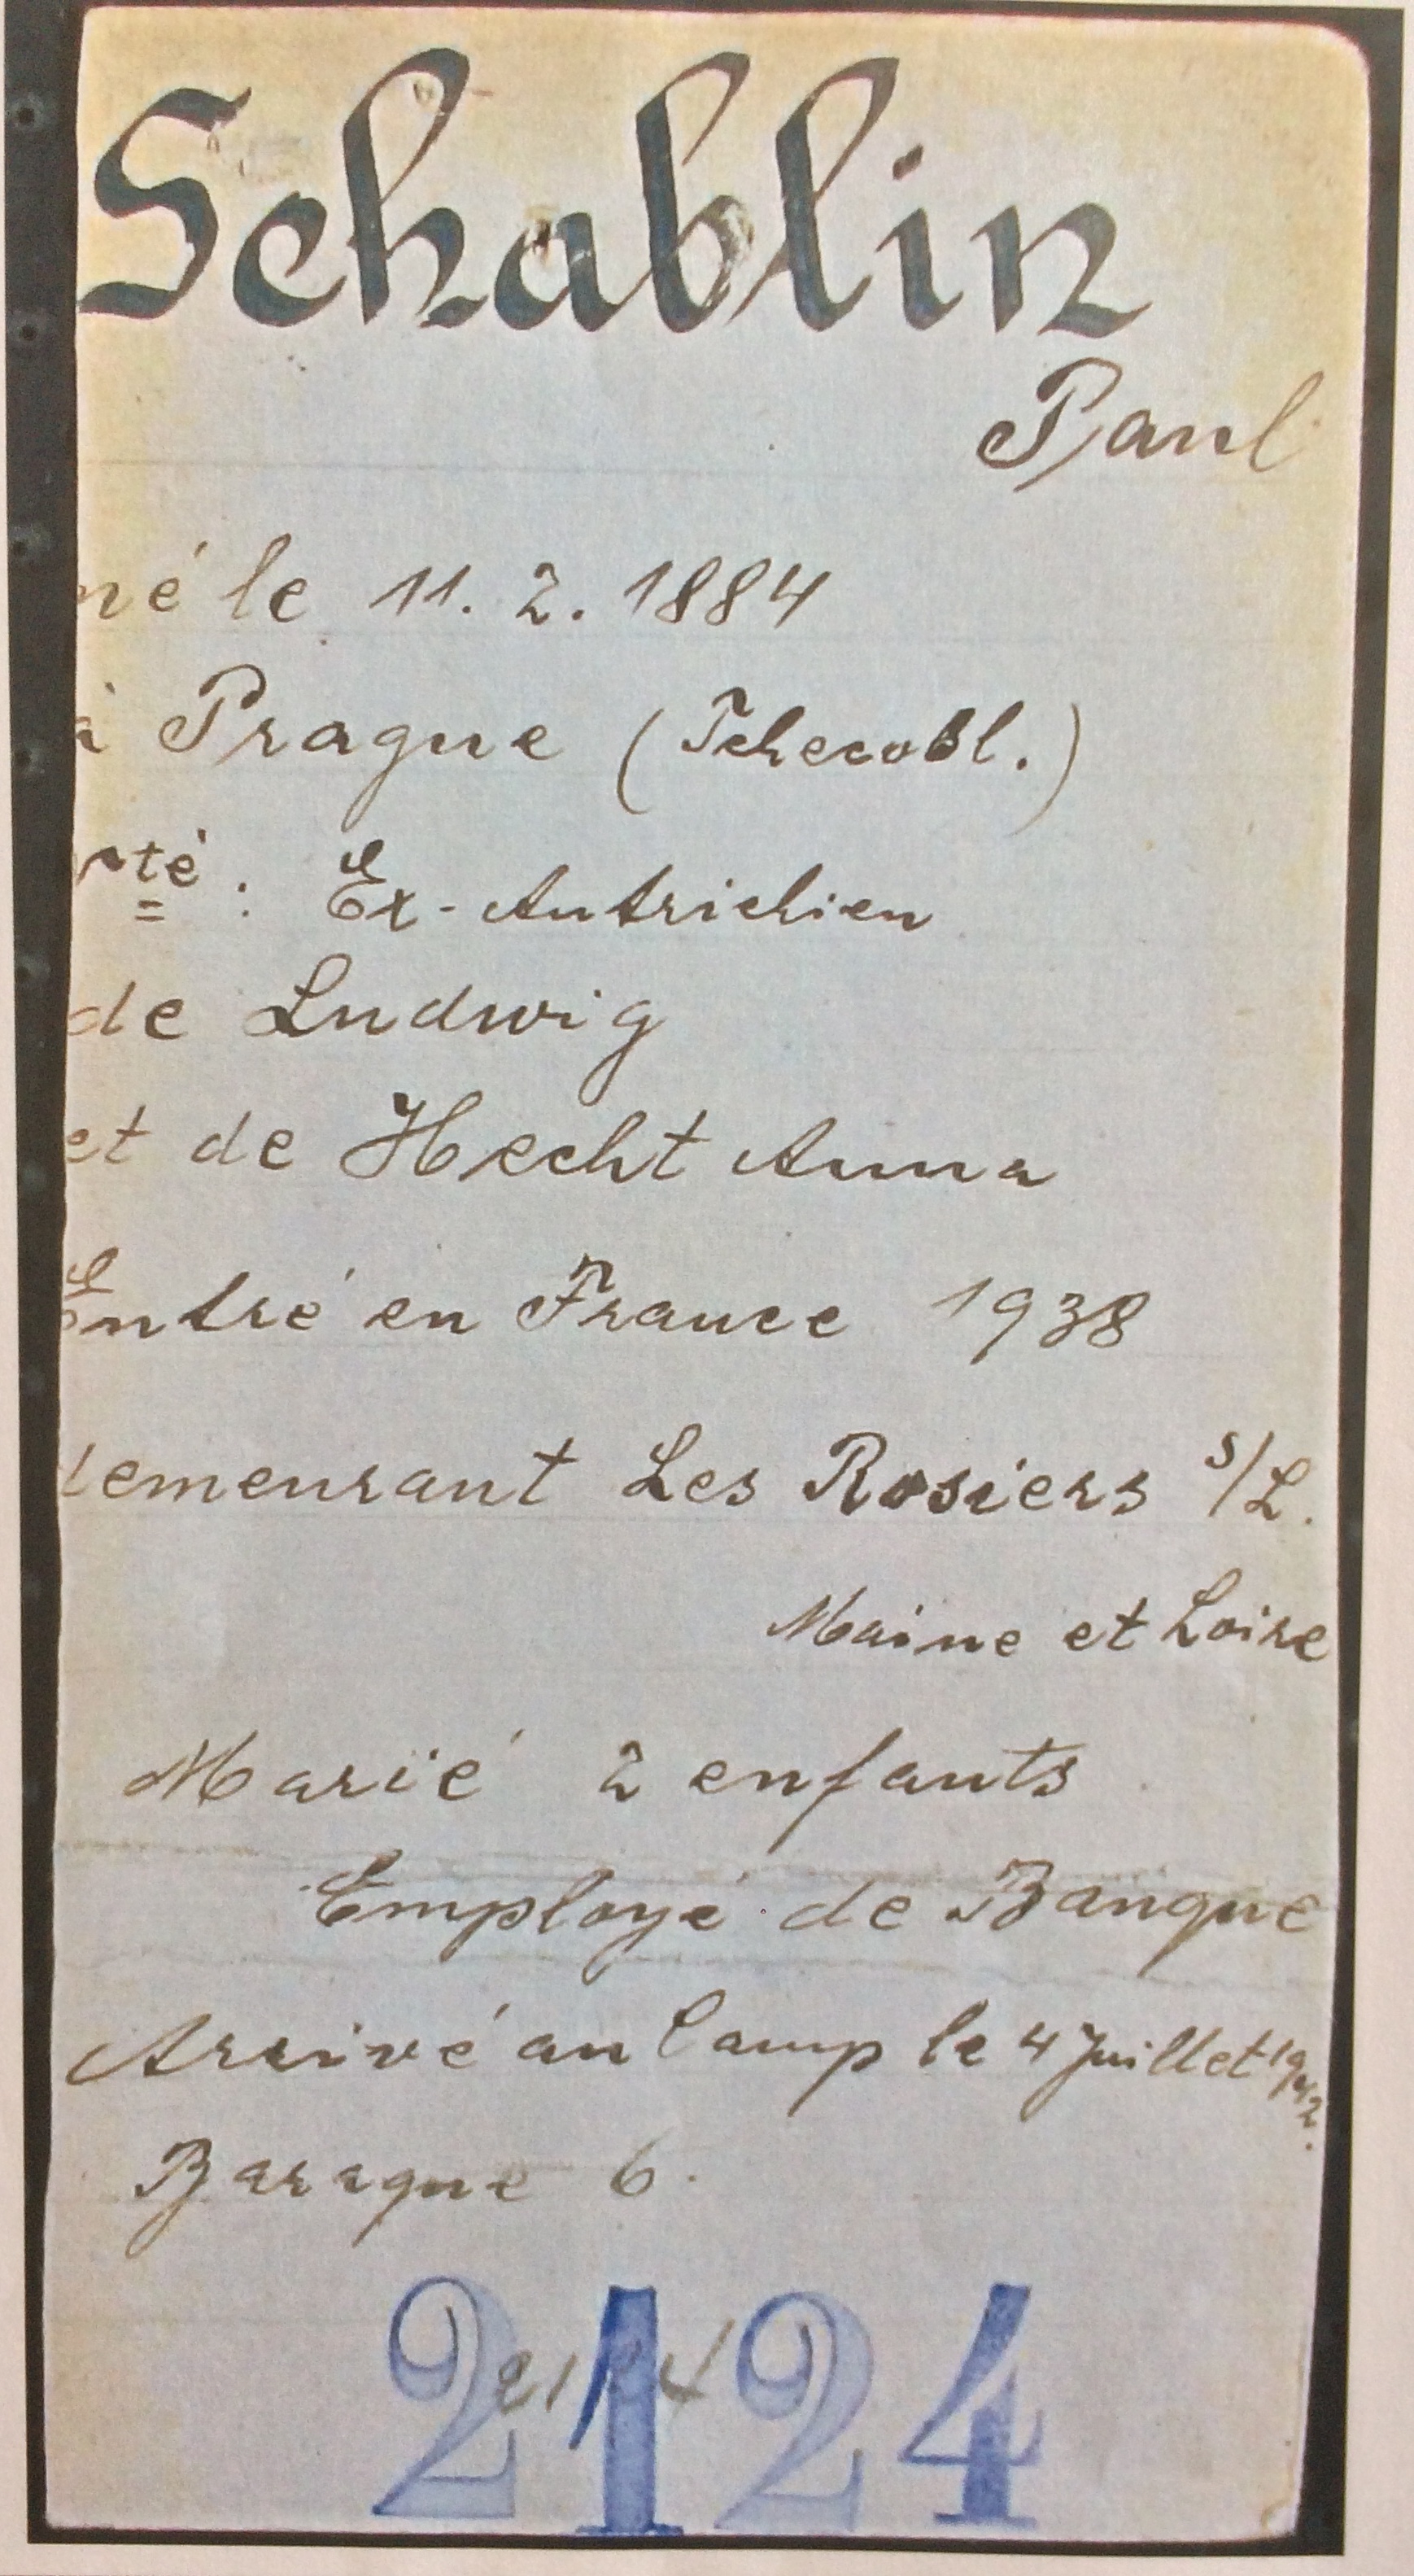 Schablin
Paul
né le 11. 2. 1884
à Prague (Tchecosl.)
nté : Ex-Autrichien
de Ludwig
et de Hecht Anna
Entré en France 1938
demeurant Les Rosiers s/L.
Maine et Loire
Marié 2 enfants
Employé de Banque
Arrivé au Camp le 4 Juillet 1942.
Baraque 6.
2124
2124